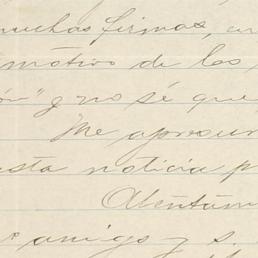 muchas firmas, en
motivo de los
ón" y no sé que
Me apresur
sta noticia p
Atentam
amigo y s.